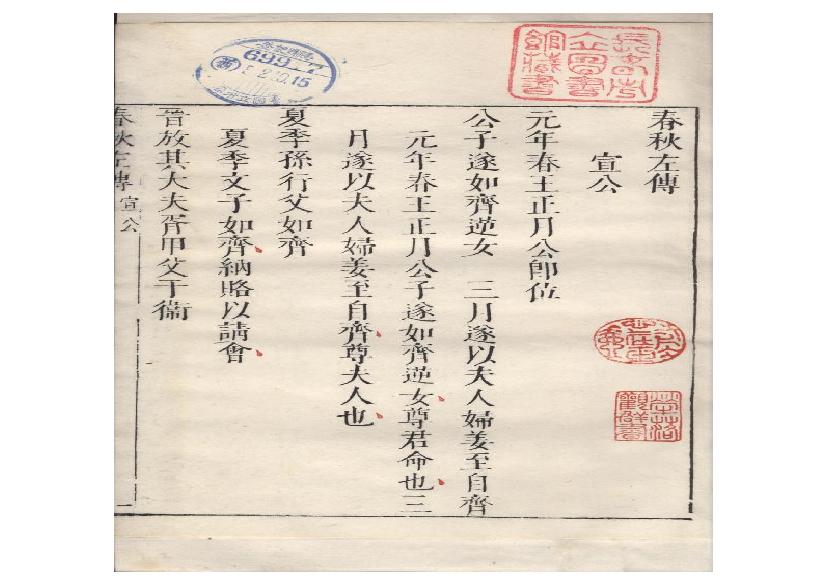 春秋左傳
宣公
元年春王正月公卽位
公子遂如齊逆女　三月遂以夫人婦姜至自齊
元年春王正月公子遂如齊逆女尊君命也三
月遂以夫人婦姜至自齊尊夫人也
夏季孫行父如齊
夏季文子如齊納賂以請會
晉放其大夫胥甲父于衞
春秋左傳 宣公
一
699